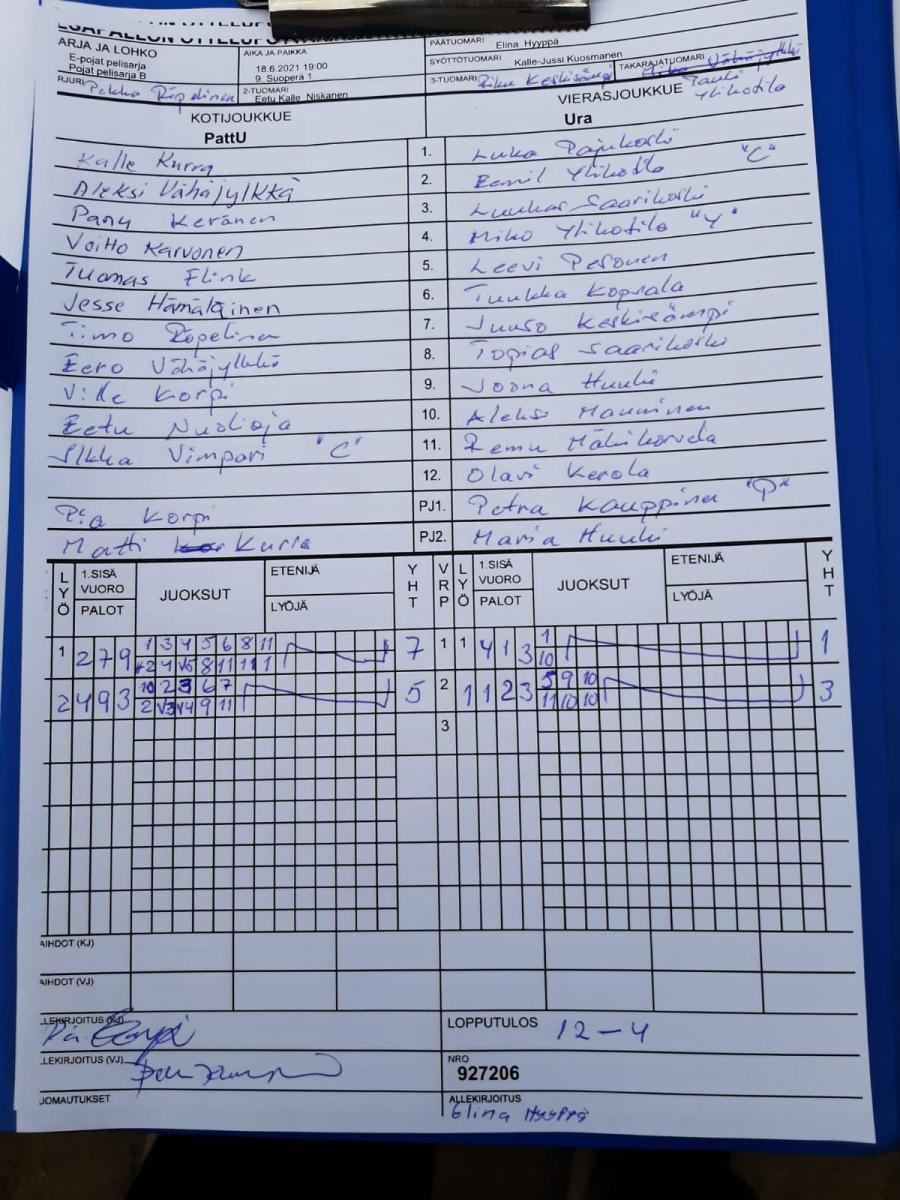 PESÄPALLON OTTELUPÖYTÄKIRJA
ARJA JA LOHKO
E-pojat pelisarja
Pojat pelisarja B
AIKA JA PAIKKA
18.6.2021 19:00
9. Suoperä 1
PÄÄTUOMARI Elina Hyyppä
SYÖTTÖTUOMARI Kalle-Jussi Kuosmanen
RJURI Pekka
2-TUOMARI Eetu Kalle Niskanen
3-TUOMARI Riku Keskisämpi
TAKARAJATUOMARI Vähäjylkkä
Ylikotila
KOTIJOUKKUE
PattU
VIERASJOUKKUE
Ura
Kalle Kurra 1. Luka Pajukoski
Aleksi Vähäjylkkä 2. Eemil Ylikotila "C"
Panu Keränen 3. Luukas Saarikoski
Voitto Karvonen 4. Miko Ylikotila "Y"
Tuomas Flink 5. Leevi Pesonen
Jesse Hämäläinen 6. Tuukka Kopsala
Timo Röpelinen 7. Juuso Keskisämpi
Eero Vähäjylkkä 8. Topias Saarikoski
Ville Korpi 9. Joona Huuki
Eetu Nuolioja 10. Aleksi Manninen
Ilkka Vimpari "C" 11. Remu
12. Olavi Kerola
Pia Korpi PJ1. Petra Kauppinen "P"
Matti Kurra PJ2. Maria Huuki
LYÖ 1.SISÄ VUORO PALOT JUOKSUT ETENIJÄ LYÖJÄ YHT VRP LYÖ 1.SISÄ VUORO PALOT JUOKSUT ETENIJÄ LYÖJÄ YHT
1 2 7 9 1 3 4 5 6 8 11 7 1 1 4 1 3 1 1
+2 4 √5 8 11 11 1 10
2 4 9 3 10 2 3 6 7 5 2 1 1 2 3 5 9 10 3
2 √3 √4 9 11 11 10 10
3
AIHDOT (KJ)
AIHDOT (VJ)
LLEKIRJOITUS (KJ) Pia Korpi
LOPPUTULOS 12-4
LLEKIRJOITUS (VJ)
NRO
927206
JOMAUTUKSET
ALLEKIRJOITUS
Elina Hyyppä